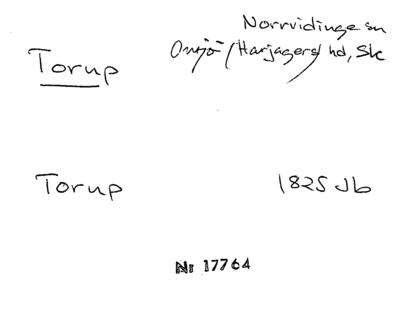 Norrvidinge sn
Torup
Onsjö (Harjagers) hd, Sk
Torup
1825 Jb
Nr 17764